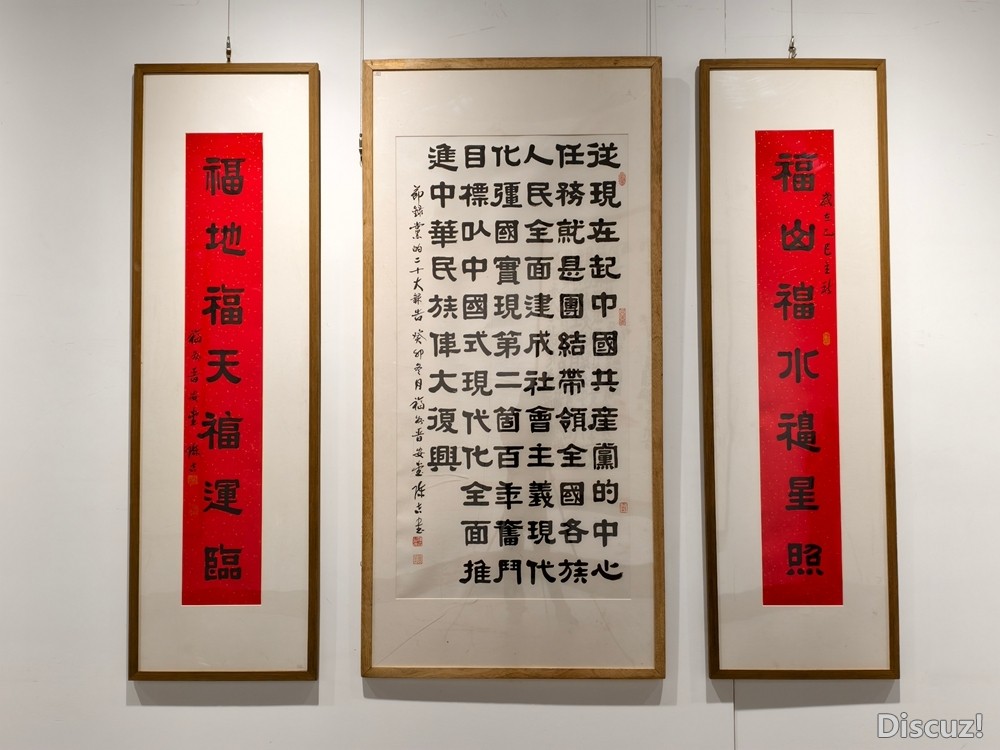 福山福水福星照
歲在乙巳
從現在起中國共産黨的中心
任務就是團結帶領全國各族
人民全面建成社會主義現代
化彊國實現第二箇百年奮鬥
目標以中國式現代化全面推
進中華民族偉大復興
節録黨的二十大報告 癸卯冬月福州晋安
福地福天福運臨
福州晋安
Discuz!